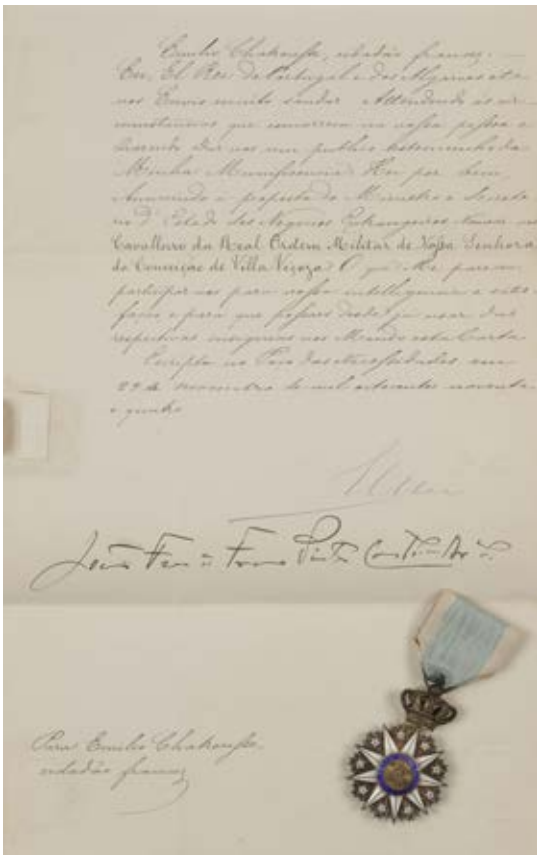 Emilio Chakouff, cidadão francez.
Eu, El Rei de Portugal e dos Algarves etc
vos Envio muito saudar. Attendendo ás cir-
cumstancias que concorrem na vossa pessoa e
Querendo dar vos um publico testemunho da
Minha Munificencia: Hei por bem,
Annuindo á proposta do Ministro e Secreta-
rio d'Estado dos Negocios Estrangeiros Nomear vos
Cavalleiro da Real Ordem Militar de Nossa Senhora
da Conceição de Villa Viçoza. O que Me pareceu
participar vos para vossa intelligencia e satis-
fação e para que possaes desde já usar das
respectivas insignias vos Mando esta Carta.
Escripta no Paço das Necessidades em
29 de novembro de mil oitocentos noventa
e quatro
El Rei
Para Emilio
cidadão francez